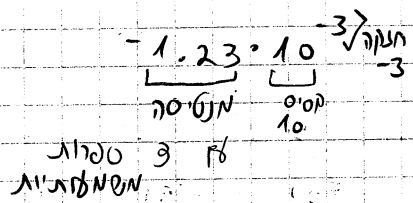 -1.23·10⁻³ חזקה -3
מנטיסה בסיס 10
עם 3 ספרות
משמעותיות